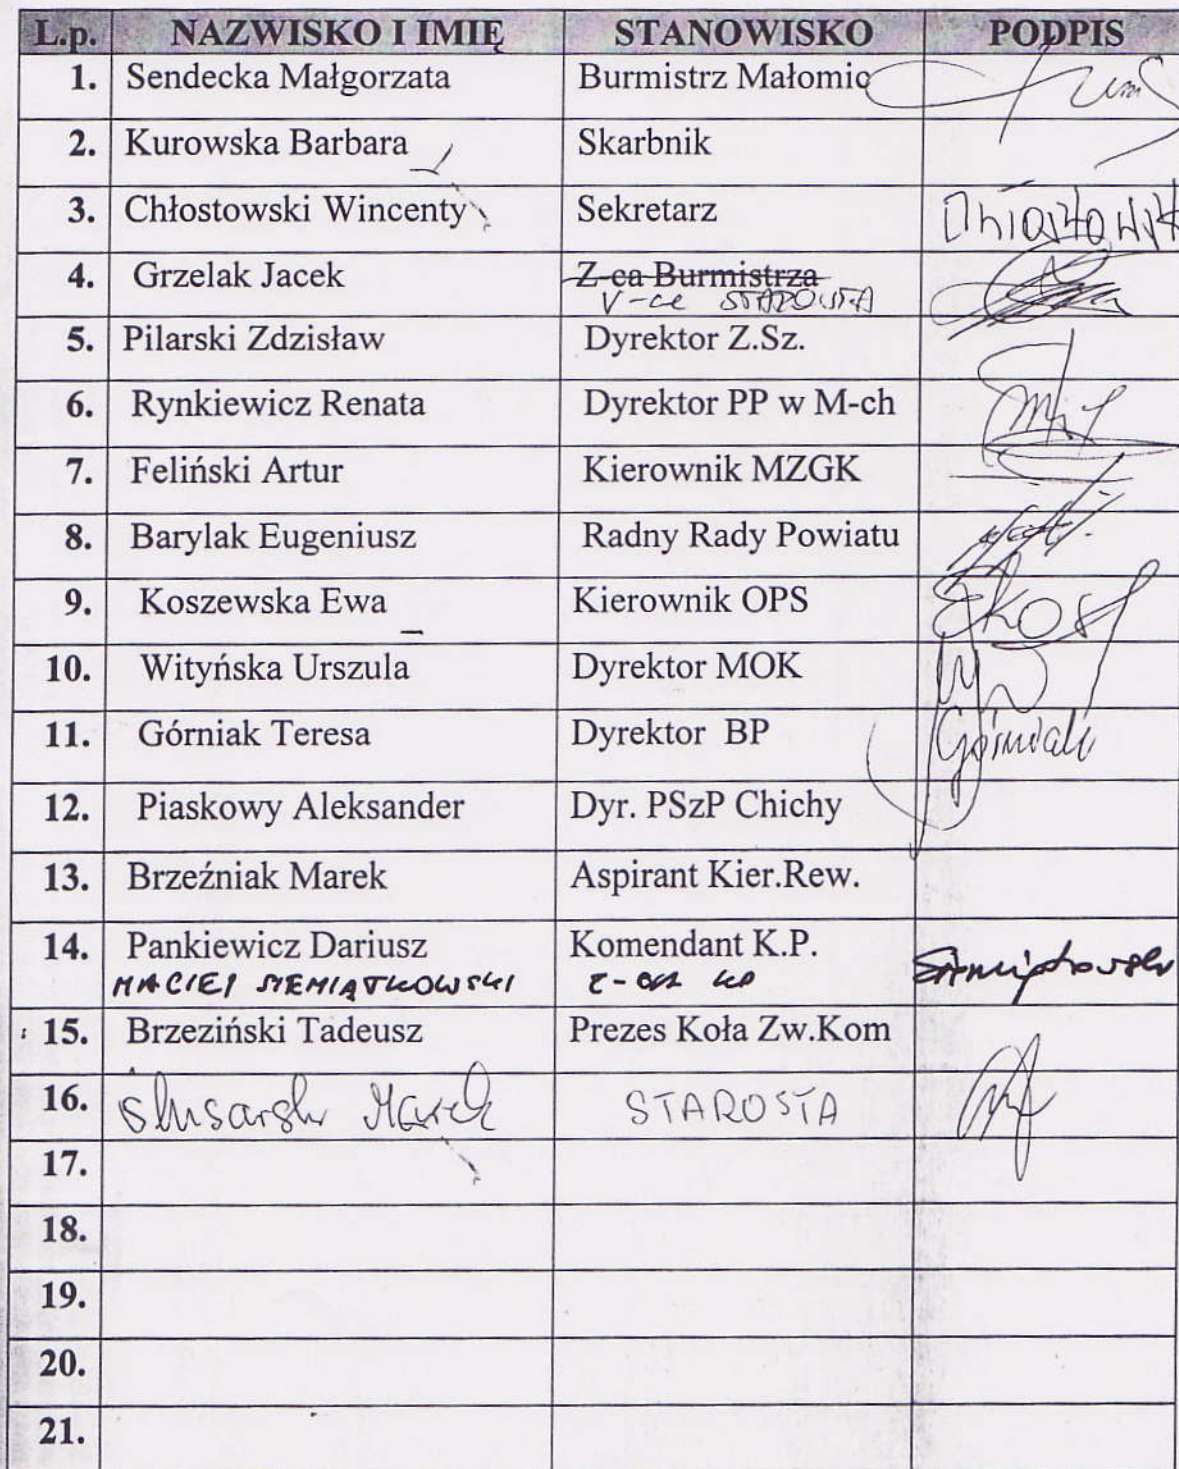 L.p. NAZWISKO I IMIĘ STANOWISKO PODPIS
1. Sendecka Małgorzata Burmistrz Małomic
2. Kurowska Barbara Skarbnik
3. Chłostowski Wincenty Sekretarz
4. Grzelak Jacek Z-ca Burmistrza
V-ce STAROSTA
5. Pilarski Zdzisław Dyrektor Z.Sz.
6. Rynkiewicz Renata Dyrektor PP w M-ch
7. Feliński Artur Kierownik MZGK
8. Barylak Eugeniusz Radny Rady Powiatu
9. Koszewska Ewa Kierownik OPS
10. Wityńska Urszula Dyrektor MOK
11. Górniak Teresa Dyrektor BP Górniak
12. Piaskowy Aleksander Dyr. PSzP Chichy
13. Brzeźniak Marek Aspirant Kier.Rew.
14. Pankiewicz Dariusz Komendant K.P.
MACIEJ SIEMIĄTKOWSKI Z-CA KP Siemiątkowski
15. Brzeziński Tadeusz Prezes Koła Zw.Kom
16. Ślusarski Marek STAROSTA
17.
18.
19.
20.
21.